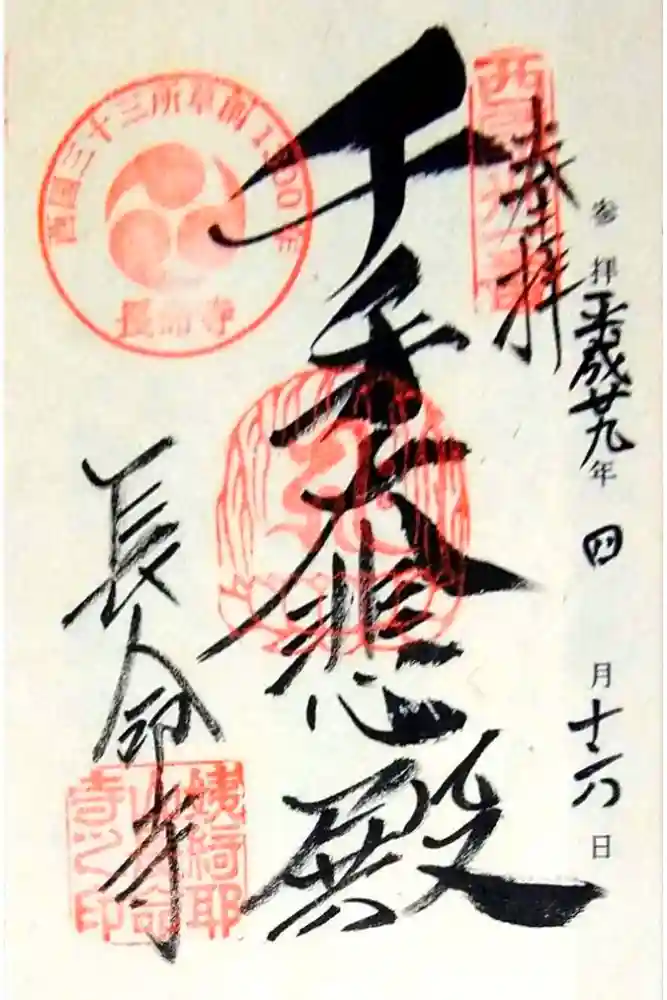 参拝 平成廿九年 四月 十六日
奉拝
西国三十一番
千手大悲殿
長命寺
西国三十三所草創1300年
長命寺
姨綺耶
山長命
寺之印